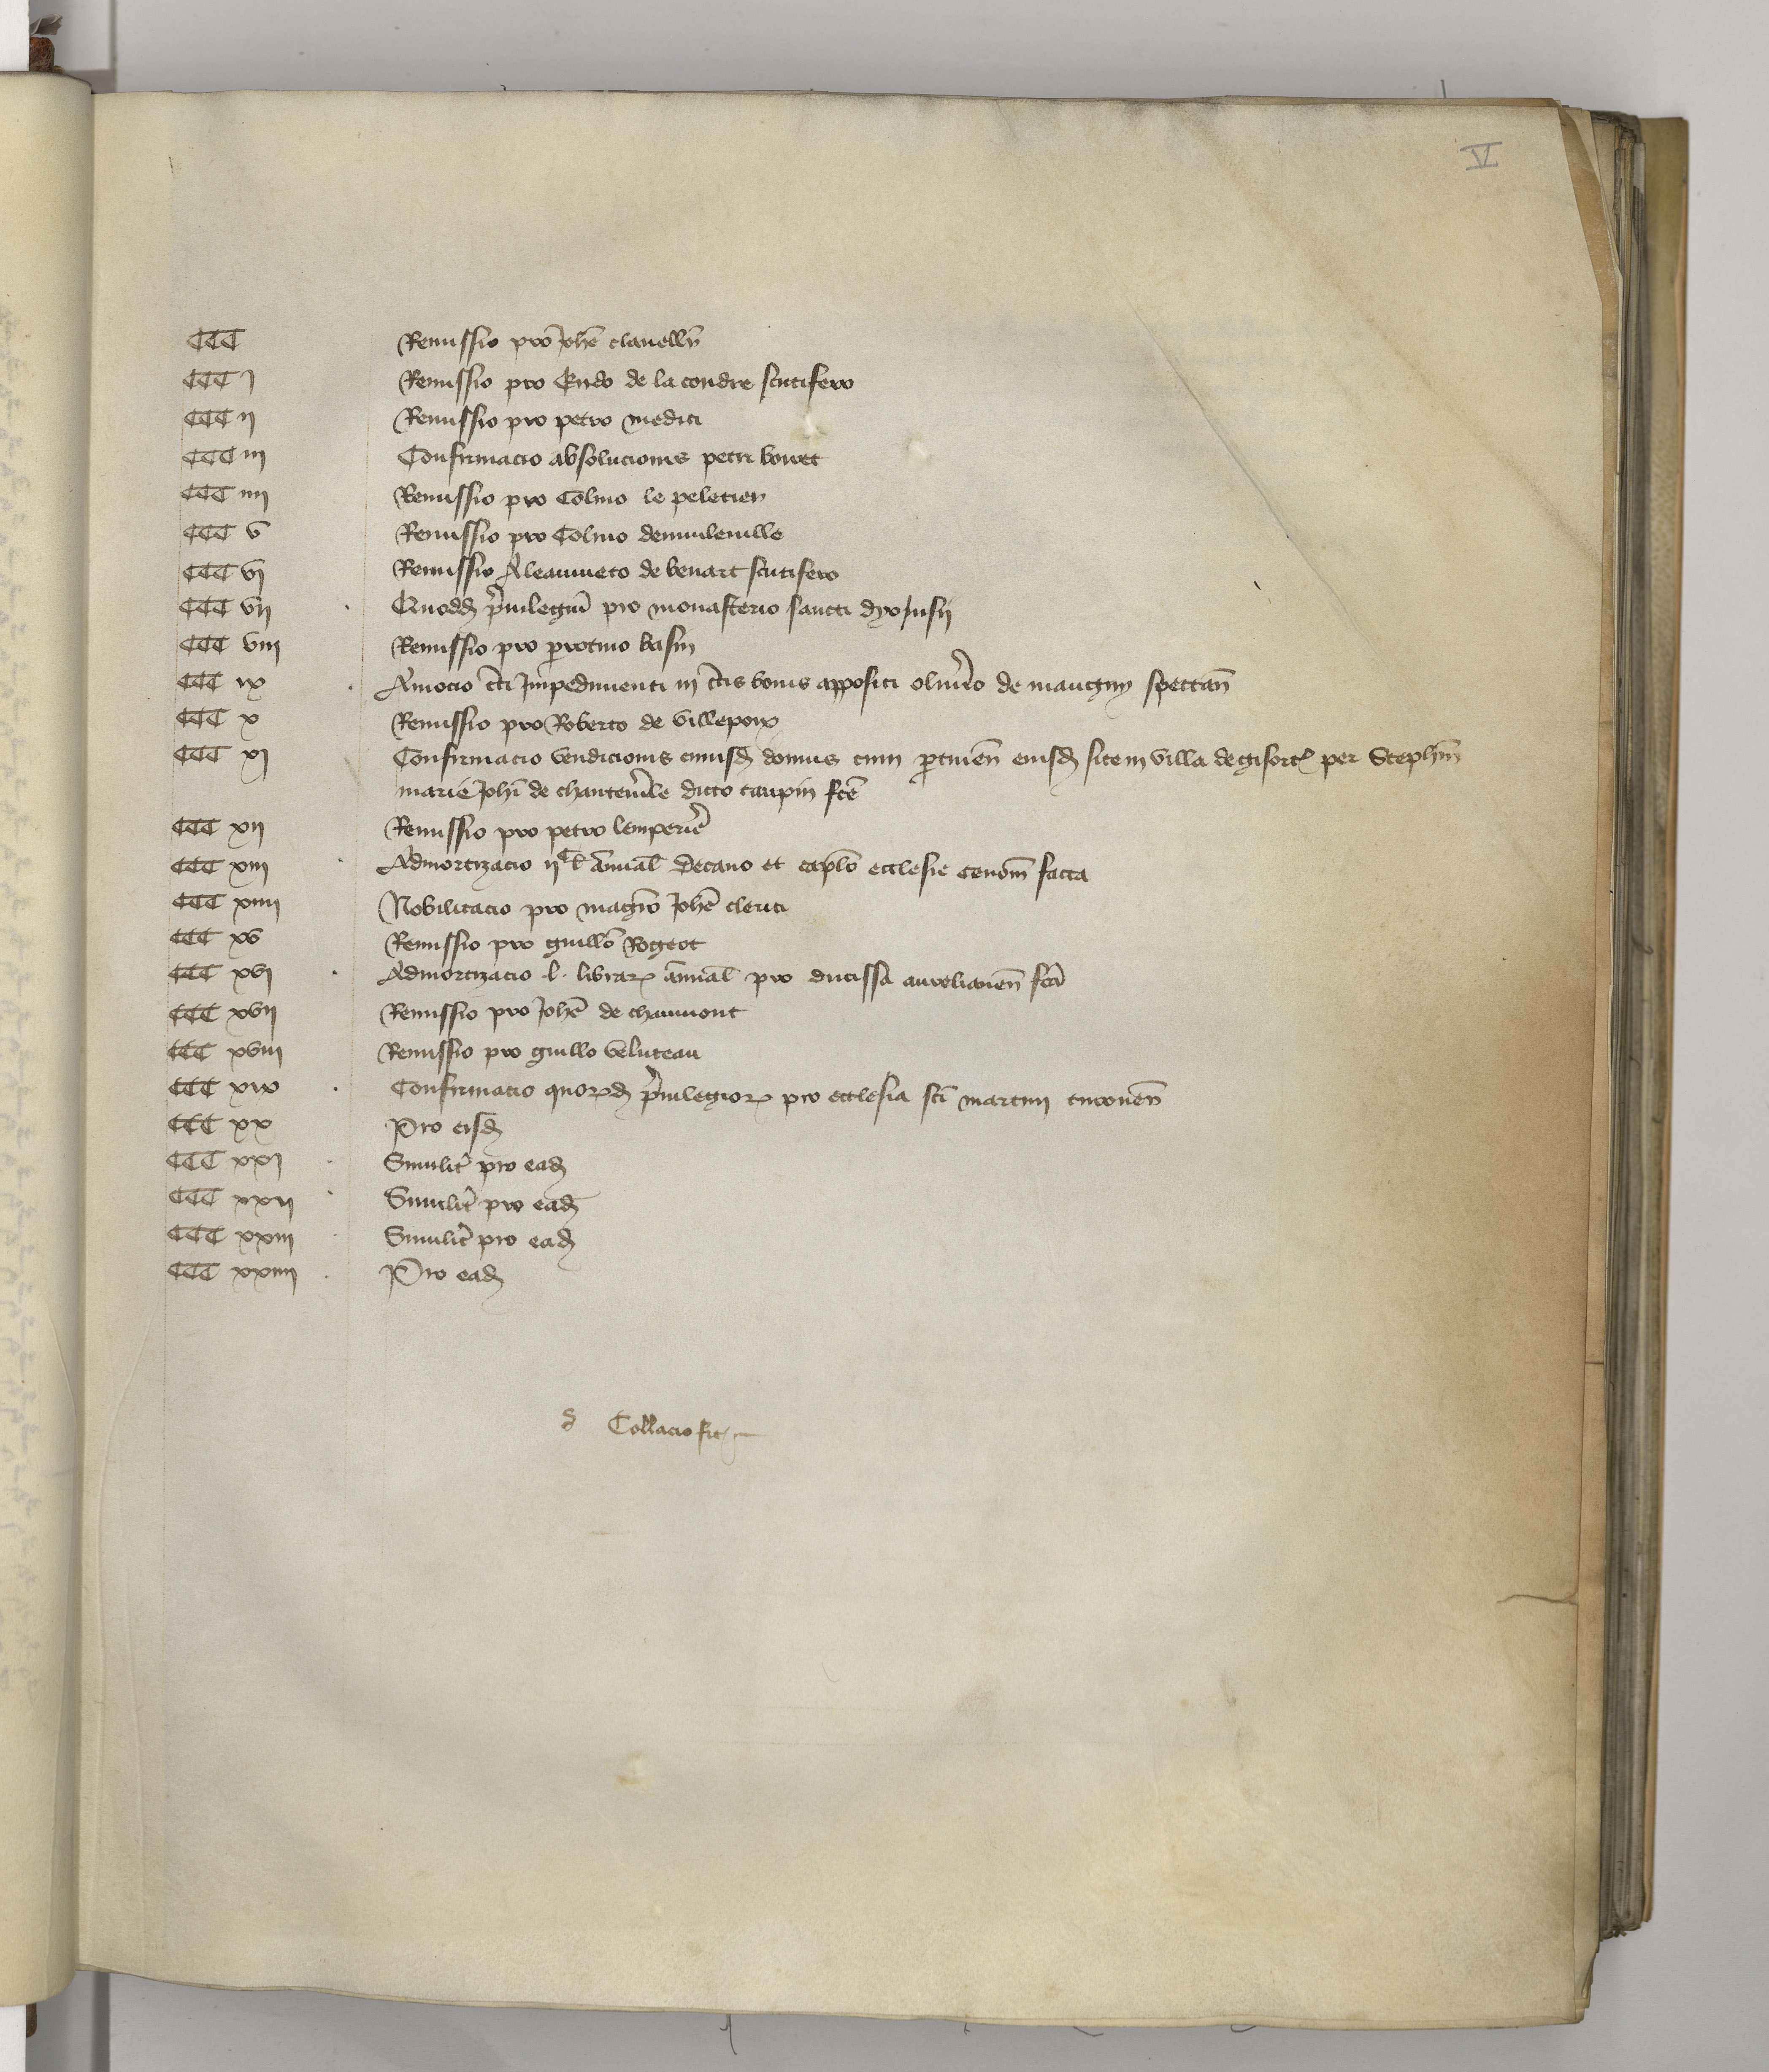 V
CCC Remissio pro Johe clauelli
CCC j Remissio pro Eudo de la coudre scutifero
CCC ij Remissio pro petro medici
CCC iij Confirmacio absolucionis petri bouet
CCC iiij Remissio pro Colino le peletier
CCC v Remissio pro Colino demuileuille
CCC vj Remissio Aleaumeto de benart scutifero
CCC vij Quodd priuilegiu pro monasterio sancti dyonisij
CCC viij Remissio pro protino basin
CCC ix Amocio cti Impedimenti in ctis bonis appositi oliuero de maugny spectan
CCC x Remissio pro Roberto de villepoix
CCC xj Confirmacio vendicionis cuiusd domus cum ptinen eiusd site in villa de gisorc per Stephm
marie Johi de chantemle dicto taupin fce
CCC xij Remissio pro petro lemperie
CCC xiij Admortizacio ijc l annual Decano et caplo ecclesie cenoman facta
CCC xiiij Nobilitacio pro magro Johe clerici
CCC xv Remissio pro guillo Rogeot
CCC xvj Admortizacio .l. librar annual pro ducissa aurelianen fca
CCC xvij Remissio pro Johe de chaumont
CCC xviij Remissio pro guillo veluteau
CCC xix Confirmacio quord priuilegior pro ecclesia sci martini turonen
CCC xx Pro eisd
CCC xxj Similit pro ead
CCC xxij Similit pro ead
CCC xxiij Similit pro ead
CCC xxiiij Pro ead
Collacio fit